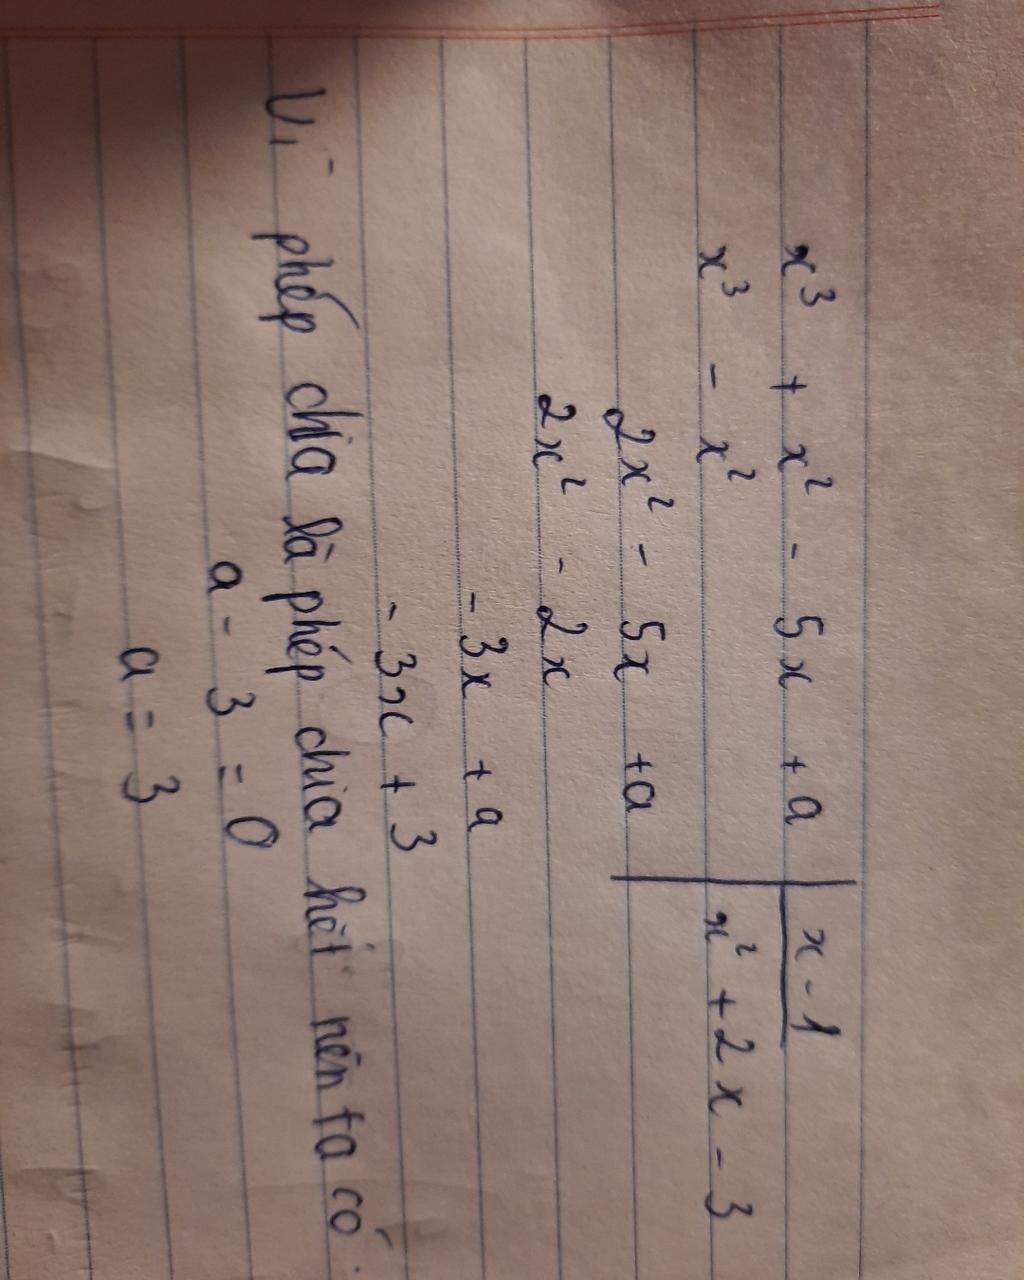 x³ + x² - 5x + a | x - 1
x³ - x² | x² + 2x - 3
2x² - 5x + a
2x² - 2x
- 3x + a
- 3x + 3
Vì phép chia là phép chia hết nên ta có
a - 3 = 0
a = 3